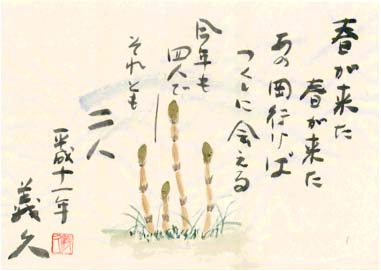 春が来た
春が来た
あの岡行けば
つくしに会える
今年も
四人で
それとも
二人
平成十一年
義久